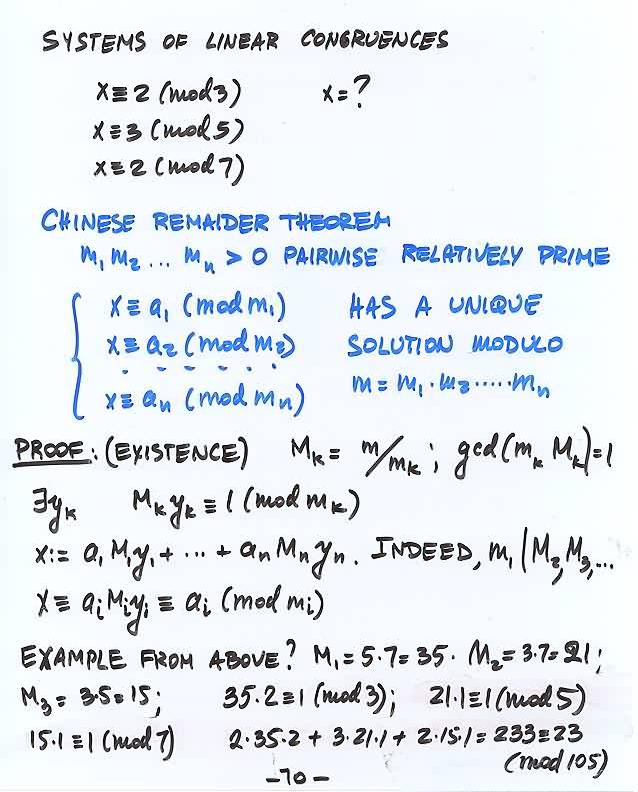 SYSTEMS OF LINEAR CONGRUENCES
x≡2 (mod 3) x=?
x≡3 (mod 5)
x≡2 (mod 7)
CHINESE REMAIDER THEOREM
m₁ m₂ ... mₙ > 0 PAIRWISE RELATIVELY PRIME
x≡a₁ (mod m₁) HAS A UNIQUE
x≡a₂ (mod m₂) SOLUTION MODULO
. . . . . . m=m₁·m₂·····mₙ
x≡aₙ (mod mₙ)
PROOF: (EXISTENCE) Mₖ= m/mₖ; gcd(mₖ Mₖ)=1
∃yₖ Mₖyₖ≡1 (mod mₖ)
x:= a₁M₁y₁+ ··· + aₙMₙyₙ. INDEED, m₁|M₂,M₃,...
x≡aᵢMᵢyᵢ≡aᵢ (mod mᵢ)
EXAMPLE FROM ABOVE? M₁=5·7=35. M₂=3·7=21;
M₃=3·5=15; 35·2≡1 (mod 3); 21·1≡1 (mod 5)
15·1≡1 (mod 7) 2·35·2 + 3·21·1 + 2·15·1=233≡23
(mod 105)
-70-